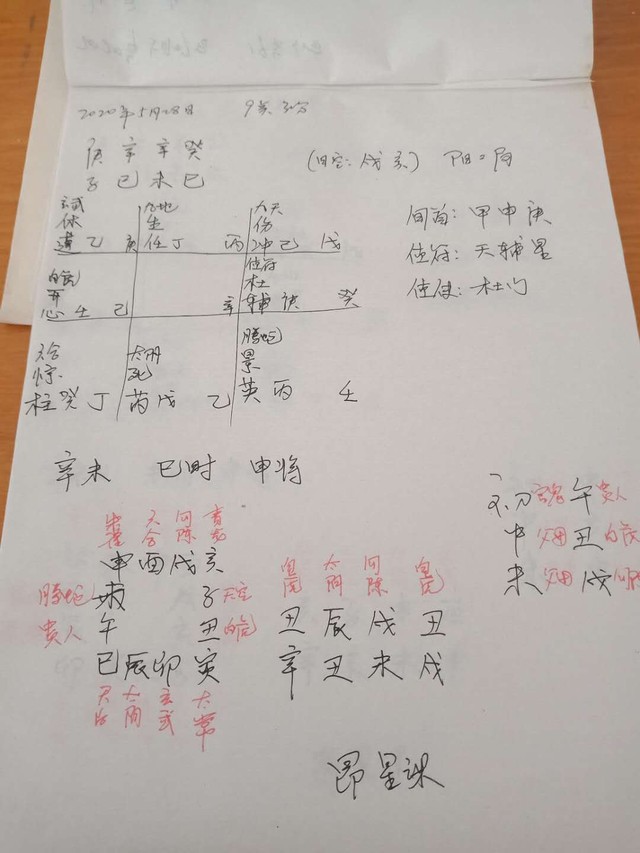 2020年5月28日 9点30分
庚 辛 辛 癸
子 巳 未 巳
(旬空: 戌 亥) 阳二局
旬首: 甲申庚
值符: 天辅星
值使: 杜门
玄武 九地 九天
休 生 伤
蓬 乙 庚 任 丁 丙 冲 己 戊
白虎 值符
开 杜
心 壬 己 辛 辅 庚 癸
六合 太阴 腾蛇
惊 死 景
柱 癸 丁 芮 戊 乙 英 丙 壬
辛未 巳时 申将
六合 青龙
申 酉 戌 亥
腾蛇 未 子 天空
贵人 午 丑 白虎
巳 辰 卯 寅
天后 太阴 玄武 太常
白虎 太阴 白虎
丑 辰 戌 丑
辛 丑 未 戌
初 午 贵人
中 丑 白虎
末 戌
昴星课